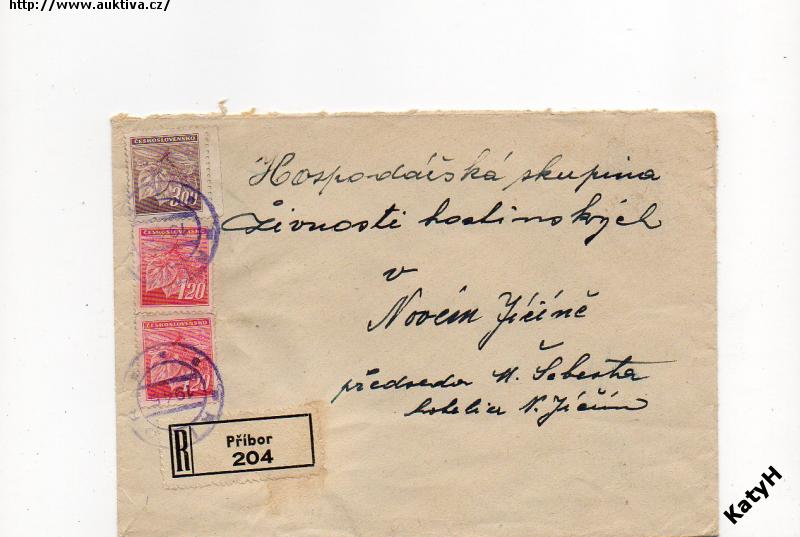 http://www.auktiva.cz/
ČESKOSLOVENSKO
3.00
ČESKOSLOVENSKO
1.20
ČESKOSLOVENSKO
Hospodářská skupina
živností hostinských
v
Novém Jičíně
předseda M. Šebesta
hotelier N. Jičín
R
Příbor
204
KatyH